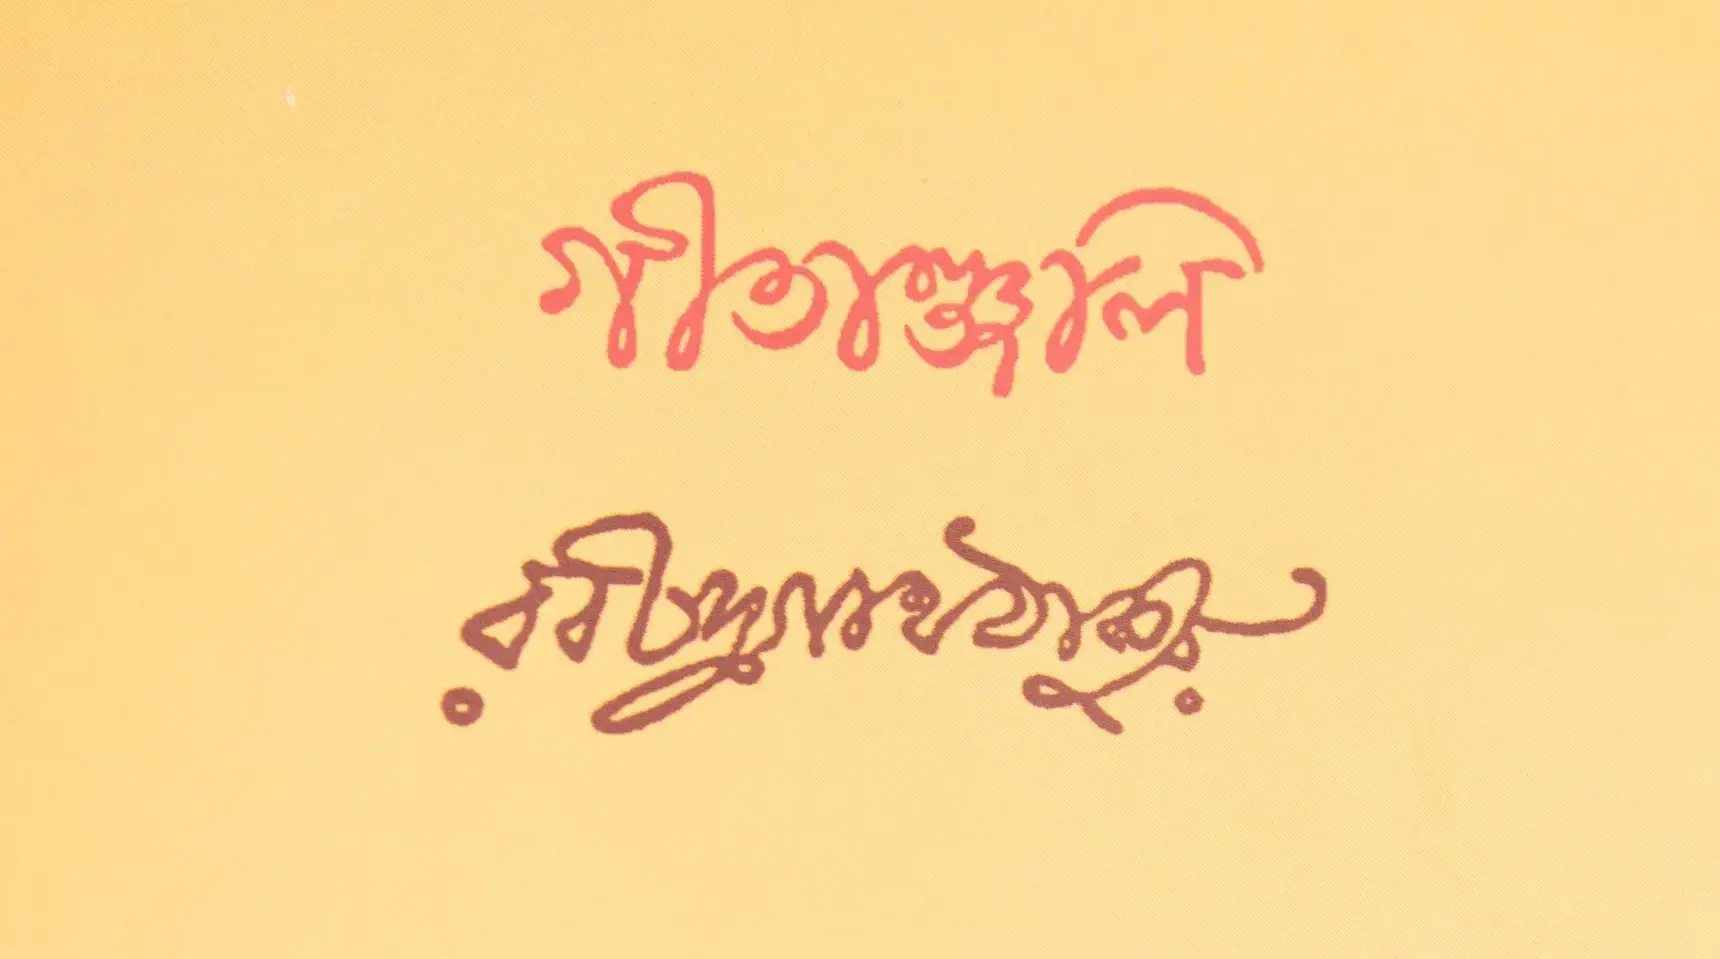 গীতাঞ্জলি
রবীন্দ্রনাথ ঠাকুর